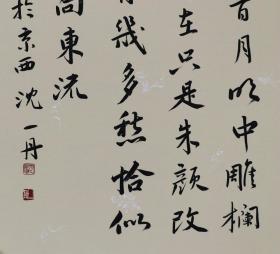 首月明中雕欄
在只是朱顏改
有幾多愁恰似
向東流
於京西沈一丹